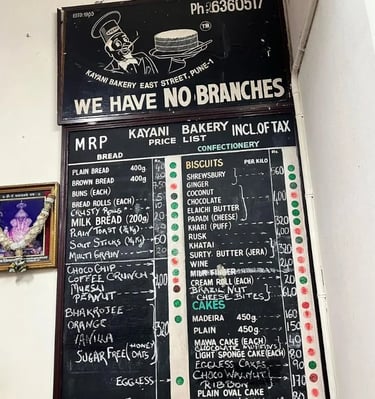 ESTD:1955
Ph:26360517
TM
KAYANI BAKERY EAST STREET, PUNE-1
WE HAVE NO BRANCHES
MRP KAYANI BAKERY INCL OF TAX
PRICE LIST
BREAD CONFECTIONERY
Rs.
PLAIN BREAD 400g
BROWN BREAD 400g
BUNS (EACH)
BREAD ROLLS (EACH)
CRUSTY ROLLS
MILK BREAD (200g)
PLAIN TOAST (¼kg)
SOUP STICKS (¼kg) 60
MULTI GRAIN
CHOCO CHIP
COFFEE CRUNCH
MUESLI
PEANUT
400
BHAKROJEE
ORANGE
VANILLA
320
SUGAR FREE (HONEY
OATS)
EGGLESS
BISCUITS PER KILO Rs.
SHREWSBURY 560
GINGER
COCONUT
CHOCOLATE
ELAICHI BUTTER 400
PAPADI (CHEESE)
KHARI (PUFF) 320
RUSK
KHATAI
SURTY. BUTTER (JERA) 320
WINE
MILK FINGER
CREAM ROLL (EACH)
BRAZIL NUT
CHEESE BITES
CAKES
MADEIRA 450g 160
PLAIN 450g 150
MAWA CAKE (EACH)
CHOCOLATE MUFFINS
LIGHT SPONGE CAKE (EACH) 80
EGGLESS CAKES 90
CHOCO WALNUT
RIBBON 170
PLAIN OVAL CAKE